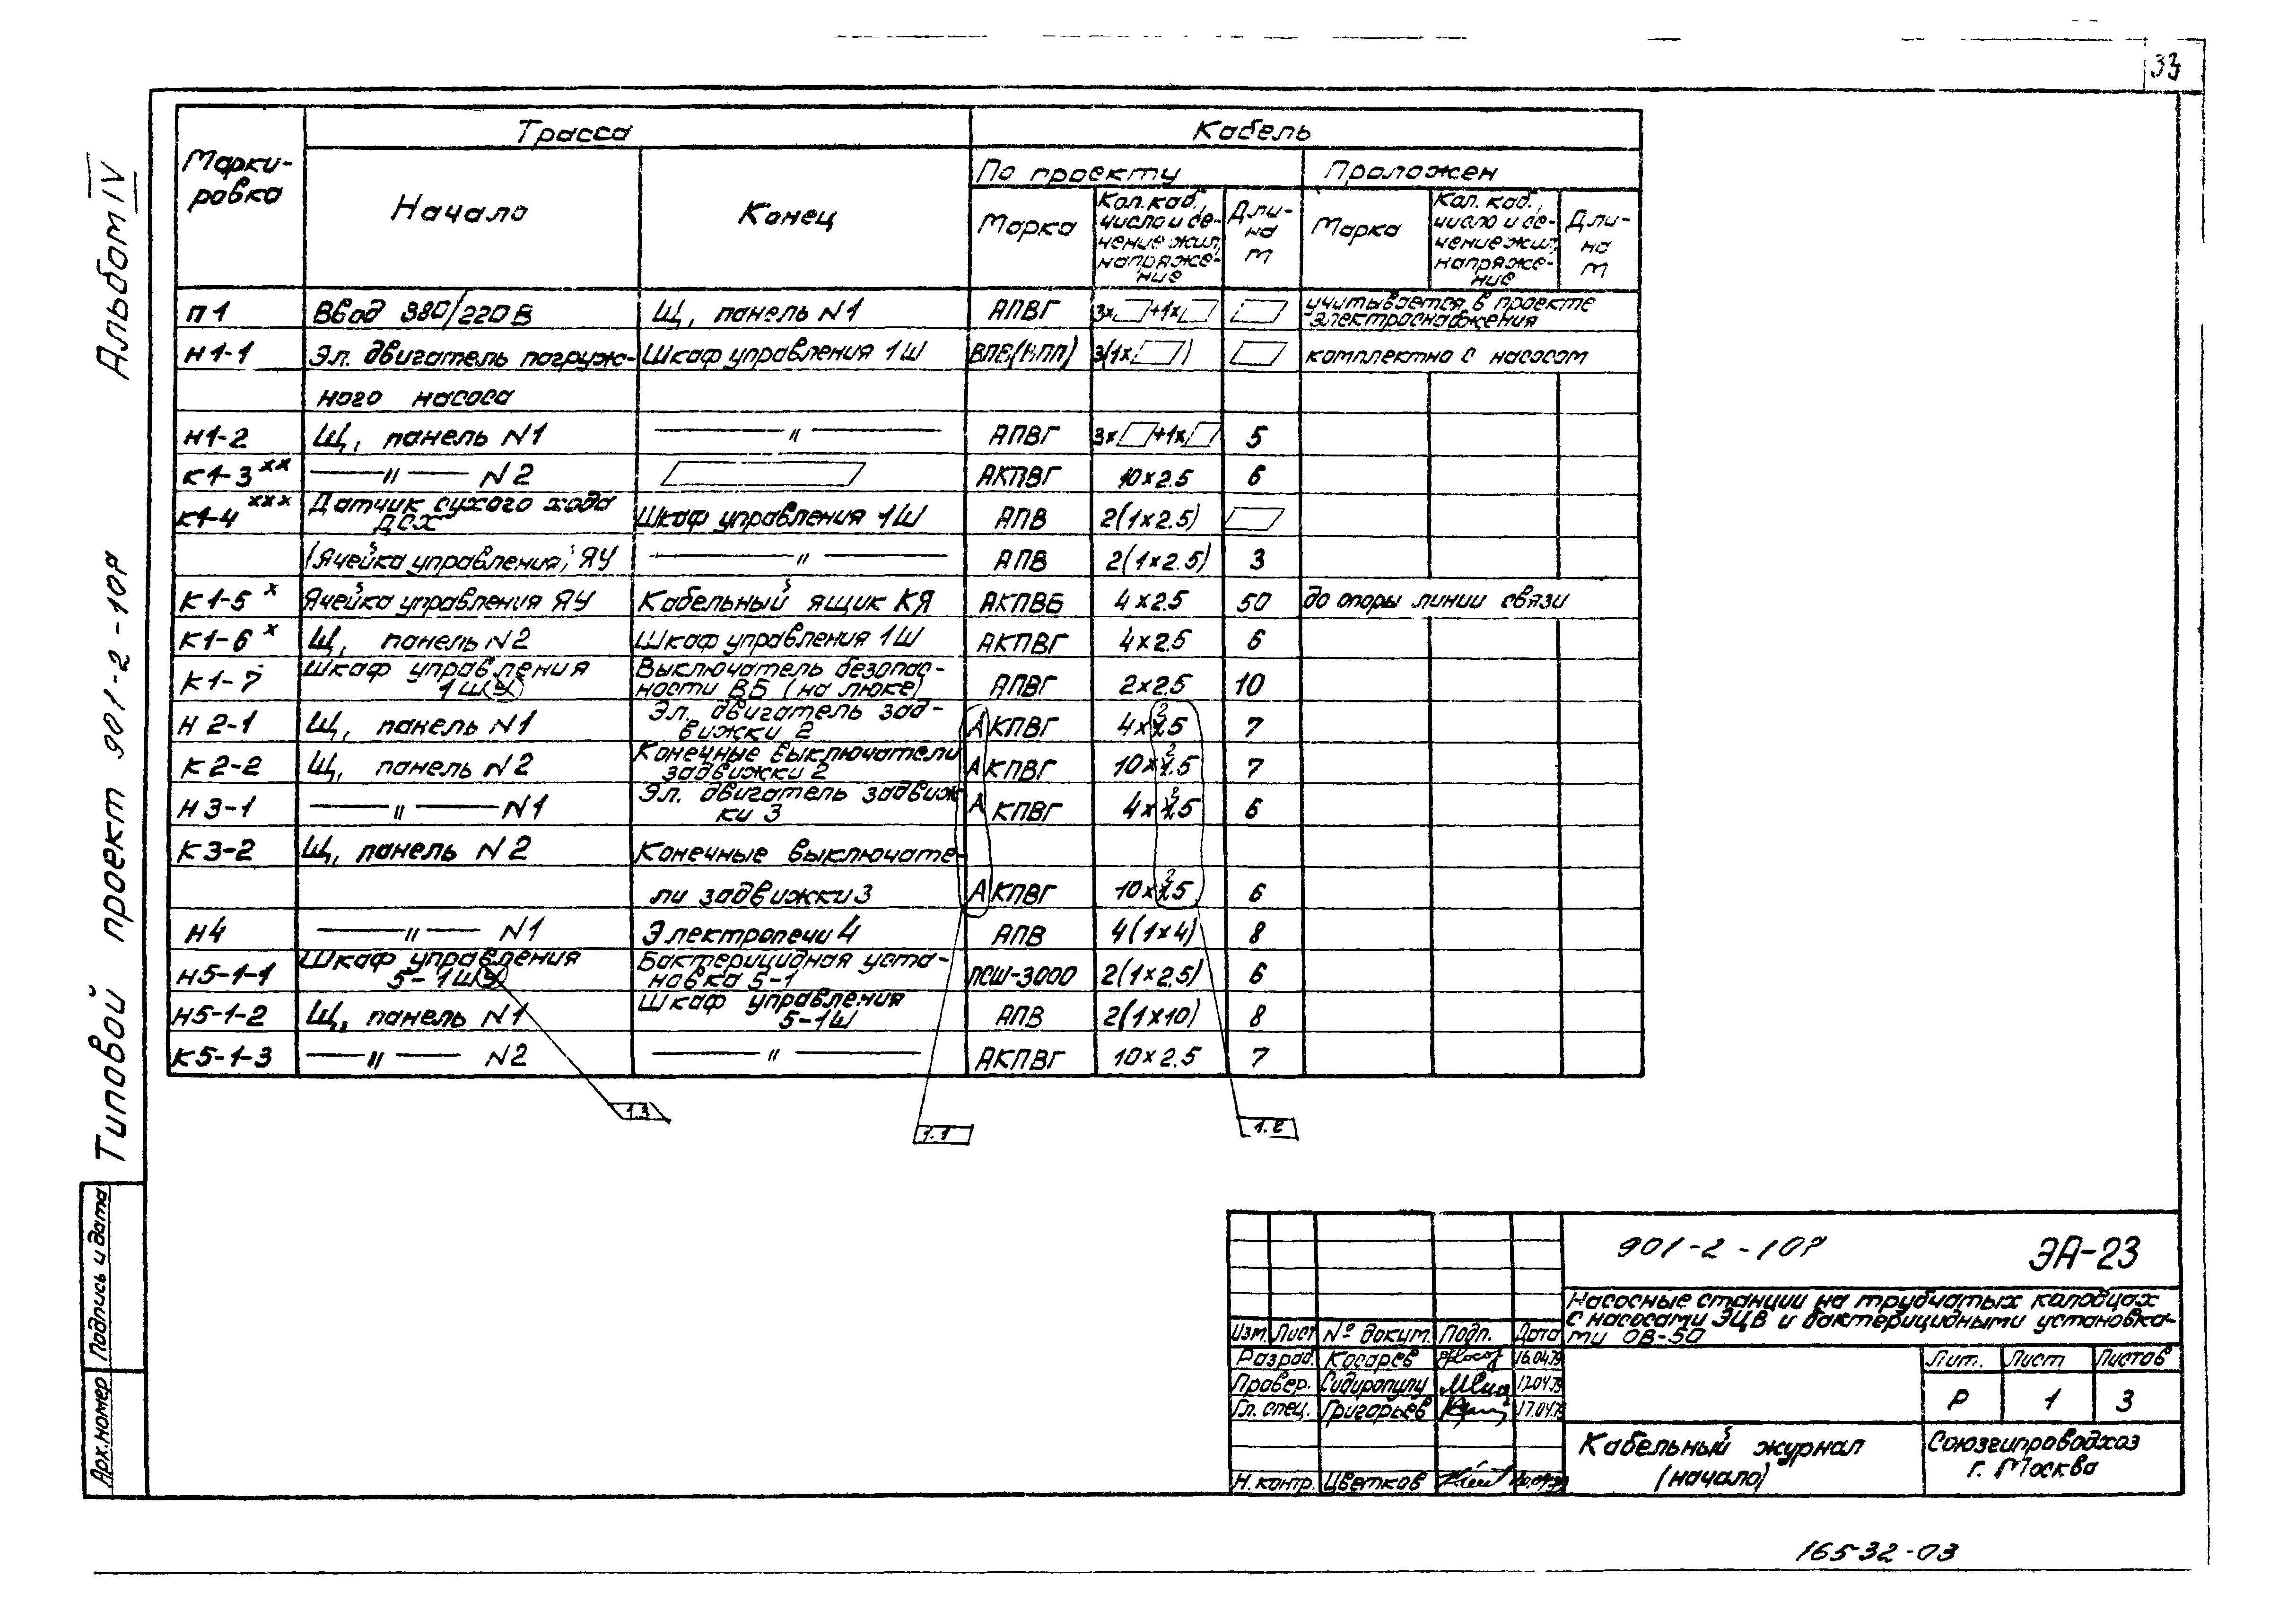 33
Альбом IV
Типовой проект 901-2-10Р
Подпись и дата
Арх.номер
Марки-
ровка
Трасса
Кабель
Начало
Конец
По проекту
Проложен
Марка
Кол. каб.,
число и се-
чение жил,
напряже-
ние
Дли-
на
м
Марка
Кол. каб.,
число и се-
чение жил,
напряже-
ние
Дли-
на
м
П1 Ввод 380/220В Щ, панель N1 АПВГ 3х +1х учитывается в проекте
электроснабжения
Н1-1 Эл. двигатель погруж- Шкаф управления 1Ш ВПВ(ВПП) 3(1х ) комплектно с насосом
ного насоса
Н1-2 Щ, панель N1 —"— АПВГ 3х +1х 5
К1-3хх —"— N2 АКПВГ 10х2.5 6
К1-4ххх Датчик сухого хода
ДСХ Шкаф управления 1Ш АПВ 2(1х2.5)
(Ячейка управления) ЯУ —"— АПВ 2(1х2.5) 3
К1-5х Ячейка управления ЯУ Кабельный ящик КЯ АКПВБ 4х2.5 50 до опоры линии связи
К1-6х Щ, панель N2 Шкаф управления 1Ш АКПВГ 4х2.5 6
К1-7 Шкаф управления
1Ш(У) Выключатель безопас-
ности ВБ (на люке) АПВГ 2х2.5 10
Н2-1 Щ, панель N1 Эл. двигатель зад-
вижки 2 АКПВГ 4х2.5 7
К2-2 Щ, панель N2 Конечные выключатели
задвижки 2 АКПВГ 10х2.5 7
Н3-1 —"— N1 Эл. двигатель задвиж-
ки 3 АКПВГ 4х2.5 6
К3-2 Щ, панель N2 Конечные выключате-
ли задвижки 3 АКПВГ 10х2.5 6
Н4 —"— N1 Электропечи 4 АПВ 4(1х4) 8
Н5-1-1 Шкаф управления
5-1Ш(У) Бактерицидная уста-
новка 5-1 ПСШ-3000 2(1х2.5) 6
Н5-1-2 Щ, панель N1 Шкаф управления
5-1Ш АПВ 2(1х10) 8
К5-1-3 —"— N2 —"— АКПВГ 10х2.5 7
1.3
1.1
1.2
901-2-10Р ЭА-23
Насосные станции на трубчатых колодцах
с насосами ЭЦВ и бактерицидными установка-
ми ОВ-50
Изм. Лист № докум. Подп. Дата
Разраб. Косарев 16.04.79
Провер. Сидиропулу 17.04.79
Гл. спец. Григорьев 17.04.79
Н. контр. Цветков
Лит. Лист Листов
Р 1 3
Кабельный журнал
(начало)
Союзгипроводхоз
г. Москва
16532-03